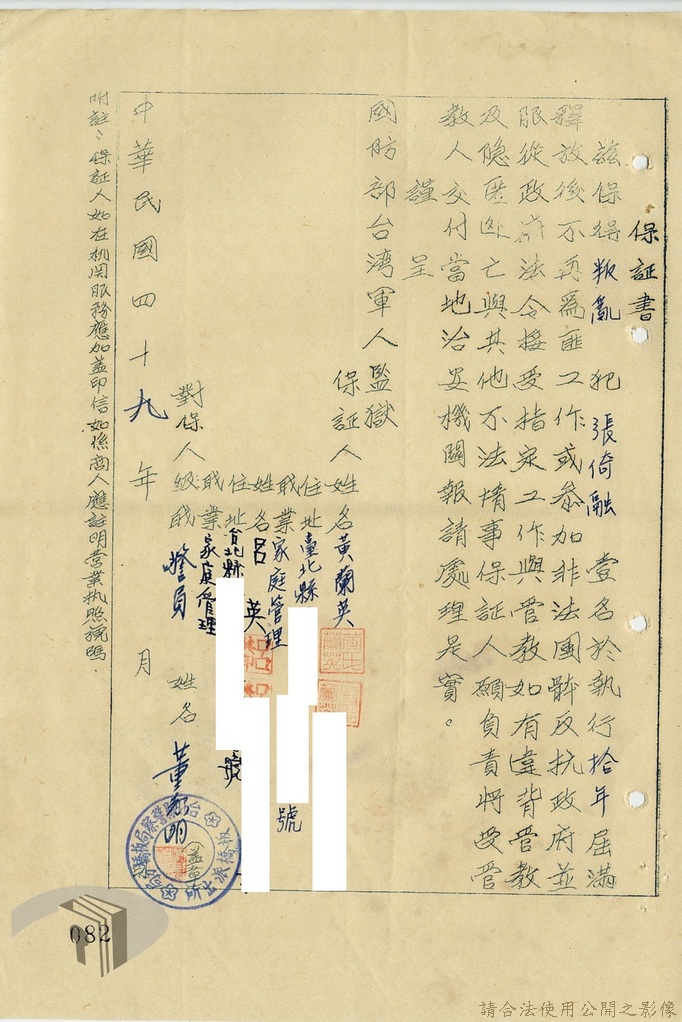 保証書
茲保得叛亂犯張倚融壹名於執行拾年屆滿
釋放後不再為匪工作或叅加非法團體反抗政府並
服從政府法令接受指定工作與管教如有違背管教
及隐匿逃亡與其他不法情事保証人願負責將受管
教人交付當地治安機關報請處理是實。
謹呈
國防部台湾軍人監獄
保証人姓名黃蘭英
住址臺北縣 號
职業家庭管理
姓名呂 英
住址台北縣 號
职業家庭管理
對保人級职 警員 姓名 董 明
中華民國四十九年 月
附註:保証人如在机関服務應加盖印信如係商人應註明营業执照號碼.
板橋派出所
082
請合法使用公開之影像